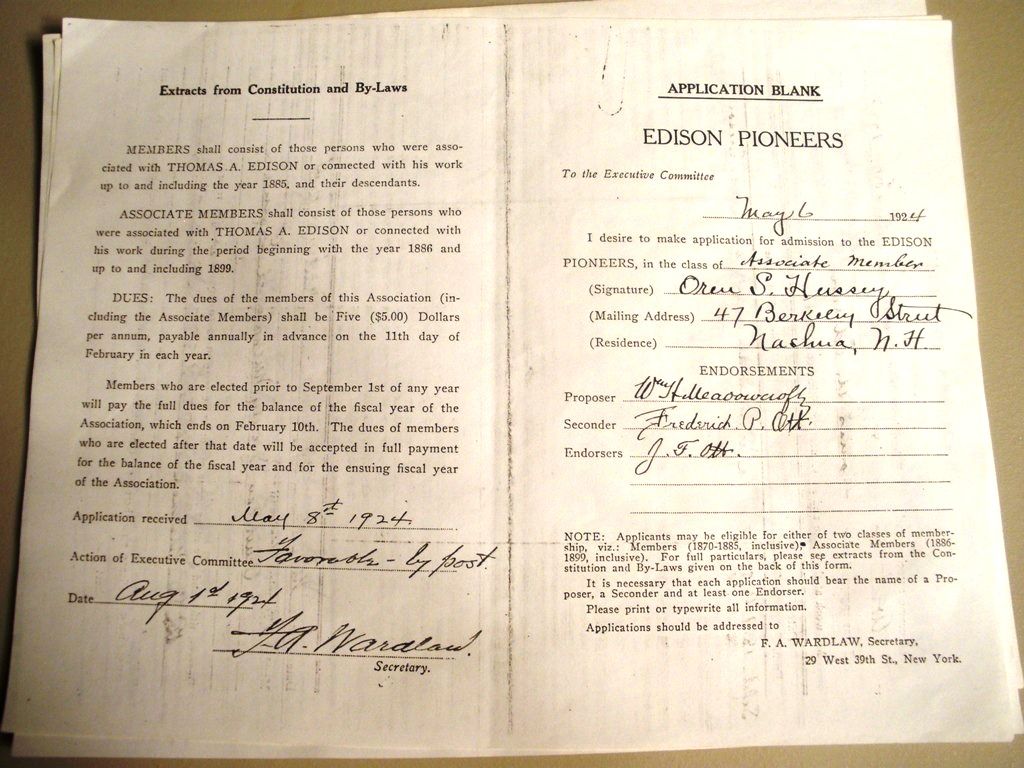 Extracts from Constitution and By-Laws
MEMBERS shall consist of those persons who were asso-
ciated with THOMAS A. EDISON or connected with his work
up to and including the year 1885, and their descendants.
ASSOCIATE MEMBERS shall consist of those persons who
were associated with THOMAS A. EDISON or connected with
his work during the period beginning with the year 1886 and
up to and including 1899.
DUES: The dues of the members of this Association (in-
cluding the Associate Members) shall be Five ($5.00) Dollars
per annum, payable annually in advance on the 11th day of
February in each year.
Members who are elected prior to September 1st of any year
will pay the full dues for the balance of the fiscal year of the
Association, which ends on February 10th. The dues of members
who are elected after that date will be accepted in full payment
for the balance of the fiscal year and for the ensuing fiscal year
of the Association.
Application received May 8th 1924
Action of Executive Committee Favorable - by post.
Date Aug 1st 1924
F.A. Wardlaw.
Secretary.
APPLICATION BLANK
EDISON PIONEERS
To the Executive Committee
May 6 1924
I desire to make application for admission to the EDISON
PIONEERS, in the class of Associate Member
(Signature) Oren S. Hussey
(Mailing Address) 47 Berkeley Street
(Residence) Nashua, N. H.
ENDORSEMENTS
Proposer Wm H Meadowcroft
Seconder Frederick P. Ott.
Endorsers J. F. Ott.
NOTE: Applicants may be eligible for either of two classes of member-
ship, viz.: Members (1870-1885, inclusive); Associate Members (1886-
1899, inclusive). For full particulars, please see extracts from the Con-
stitution and By-Laws given on the back of this form.
It is necessary that each application should bear the name of a Pro-
poser, a Seconder and at least one Endorser.
Please print or typewrite all information.
Applications should be addressed to
F. A. WARDLAW, Secretary,
29 West 39th St., New York.